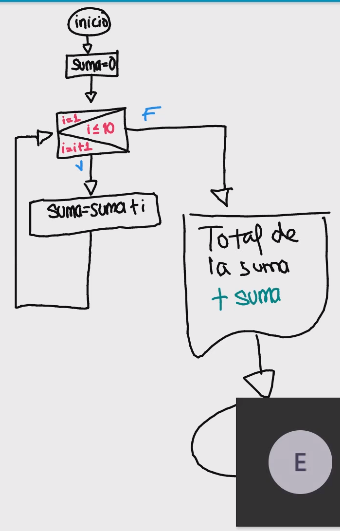 inicio
suma=0
i=1
i≤10
i=i+1
F
V
suma=suma+i
Total de
la suma
+ suma
E